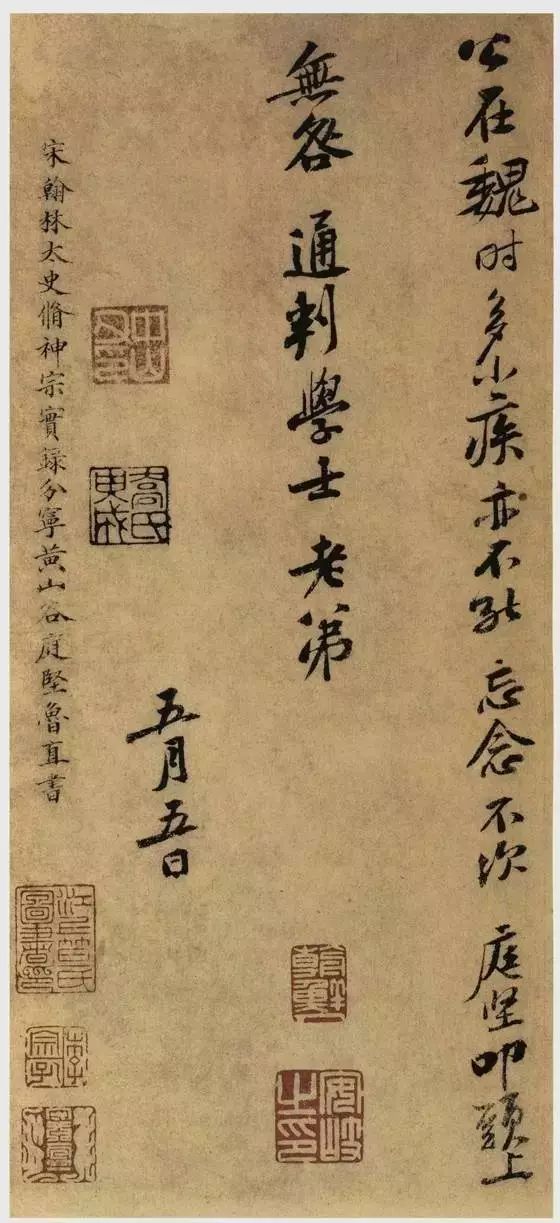 公在魏时多小疾亦不能忘念不次庭坚叩頭上
無咎通判學士老弟
五月五日
宋翰林太史脩神宗實録分寧黄山谷庭堅魯直書
喬氏
安岐之印